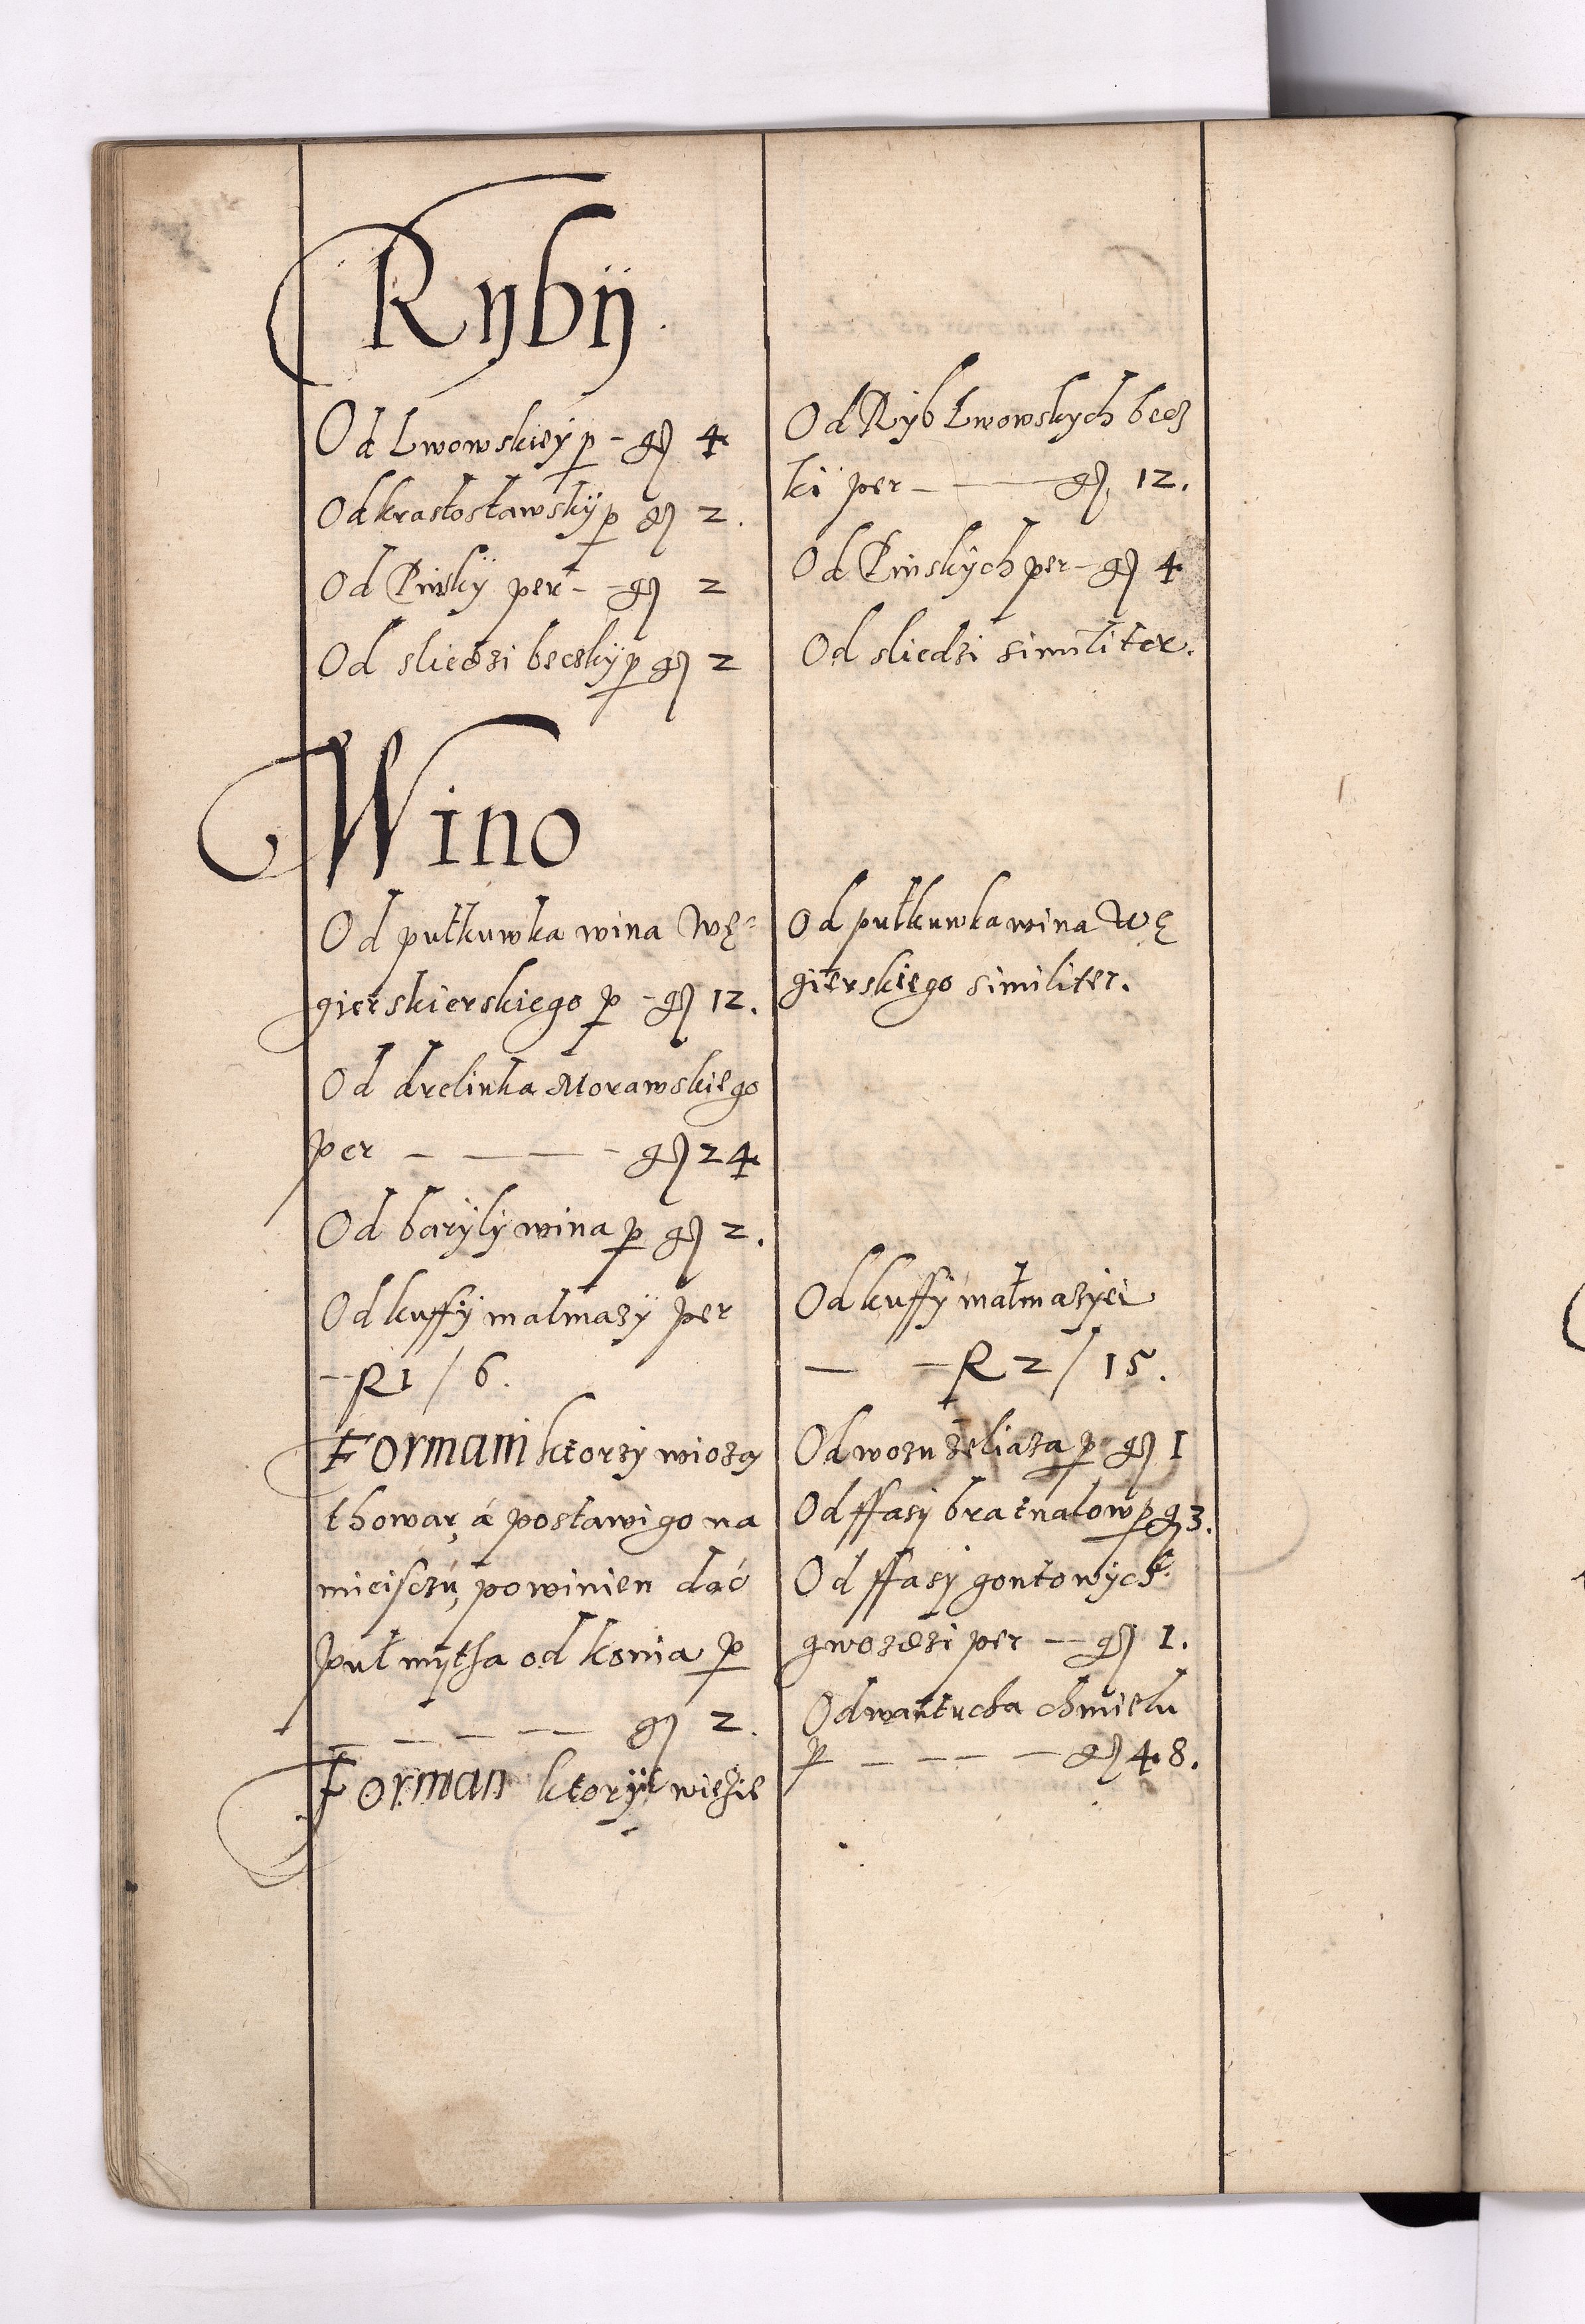 Rÿbÿ.
Od Lwowskieÿ p - gӡ 4
Od krastostawskÿ p gӡ 2.
Od Pinskÿ per - - gӡ 2
Od sliedzi beczkÿ p gӡ 2
Wino
Od pułkuwka wina Wę=
gierskierskiego p - gӡ 12.
Od drelinka Morawskiego
per - - - - gӡ 24
Od barÿlÿ wina p gӡ 2.
Od kuffÿ malmazÿ per
- R 1 / 6.
Formani ktorzÿ wioza
thowar, á postawi go na
mieisczu, powinien dáć
puł mÿtha od konia p
- - - - gӡ 2.
Forman ktorÿ wiezie
Od Rÿb Lwowskÿch becz
kÿ per - - gӡ 12.
Od Pinskÿch per - gӡ 4
Od sliedzi similiter.
Od pułkuwka wina Wę
gierskiego similiter.
Od kuffÿ małmazÿei
- - R 2 / 15.
Od wozu zeliaza p gӡ 1
Od ffasÿ bratnalow p gӡ 3.
Od ffasÿ gontowÿch
gwozdzi per - gӡ 1.
Od wantucha chmielu
p - - - - gӡ 48.